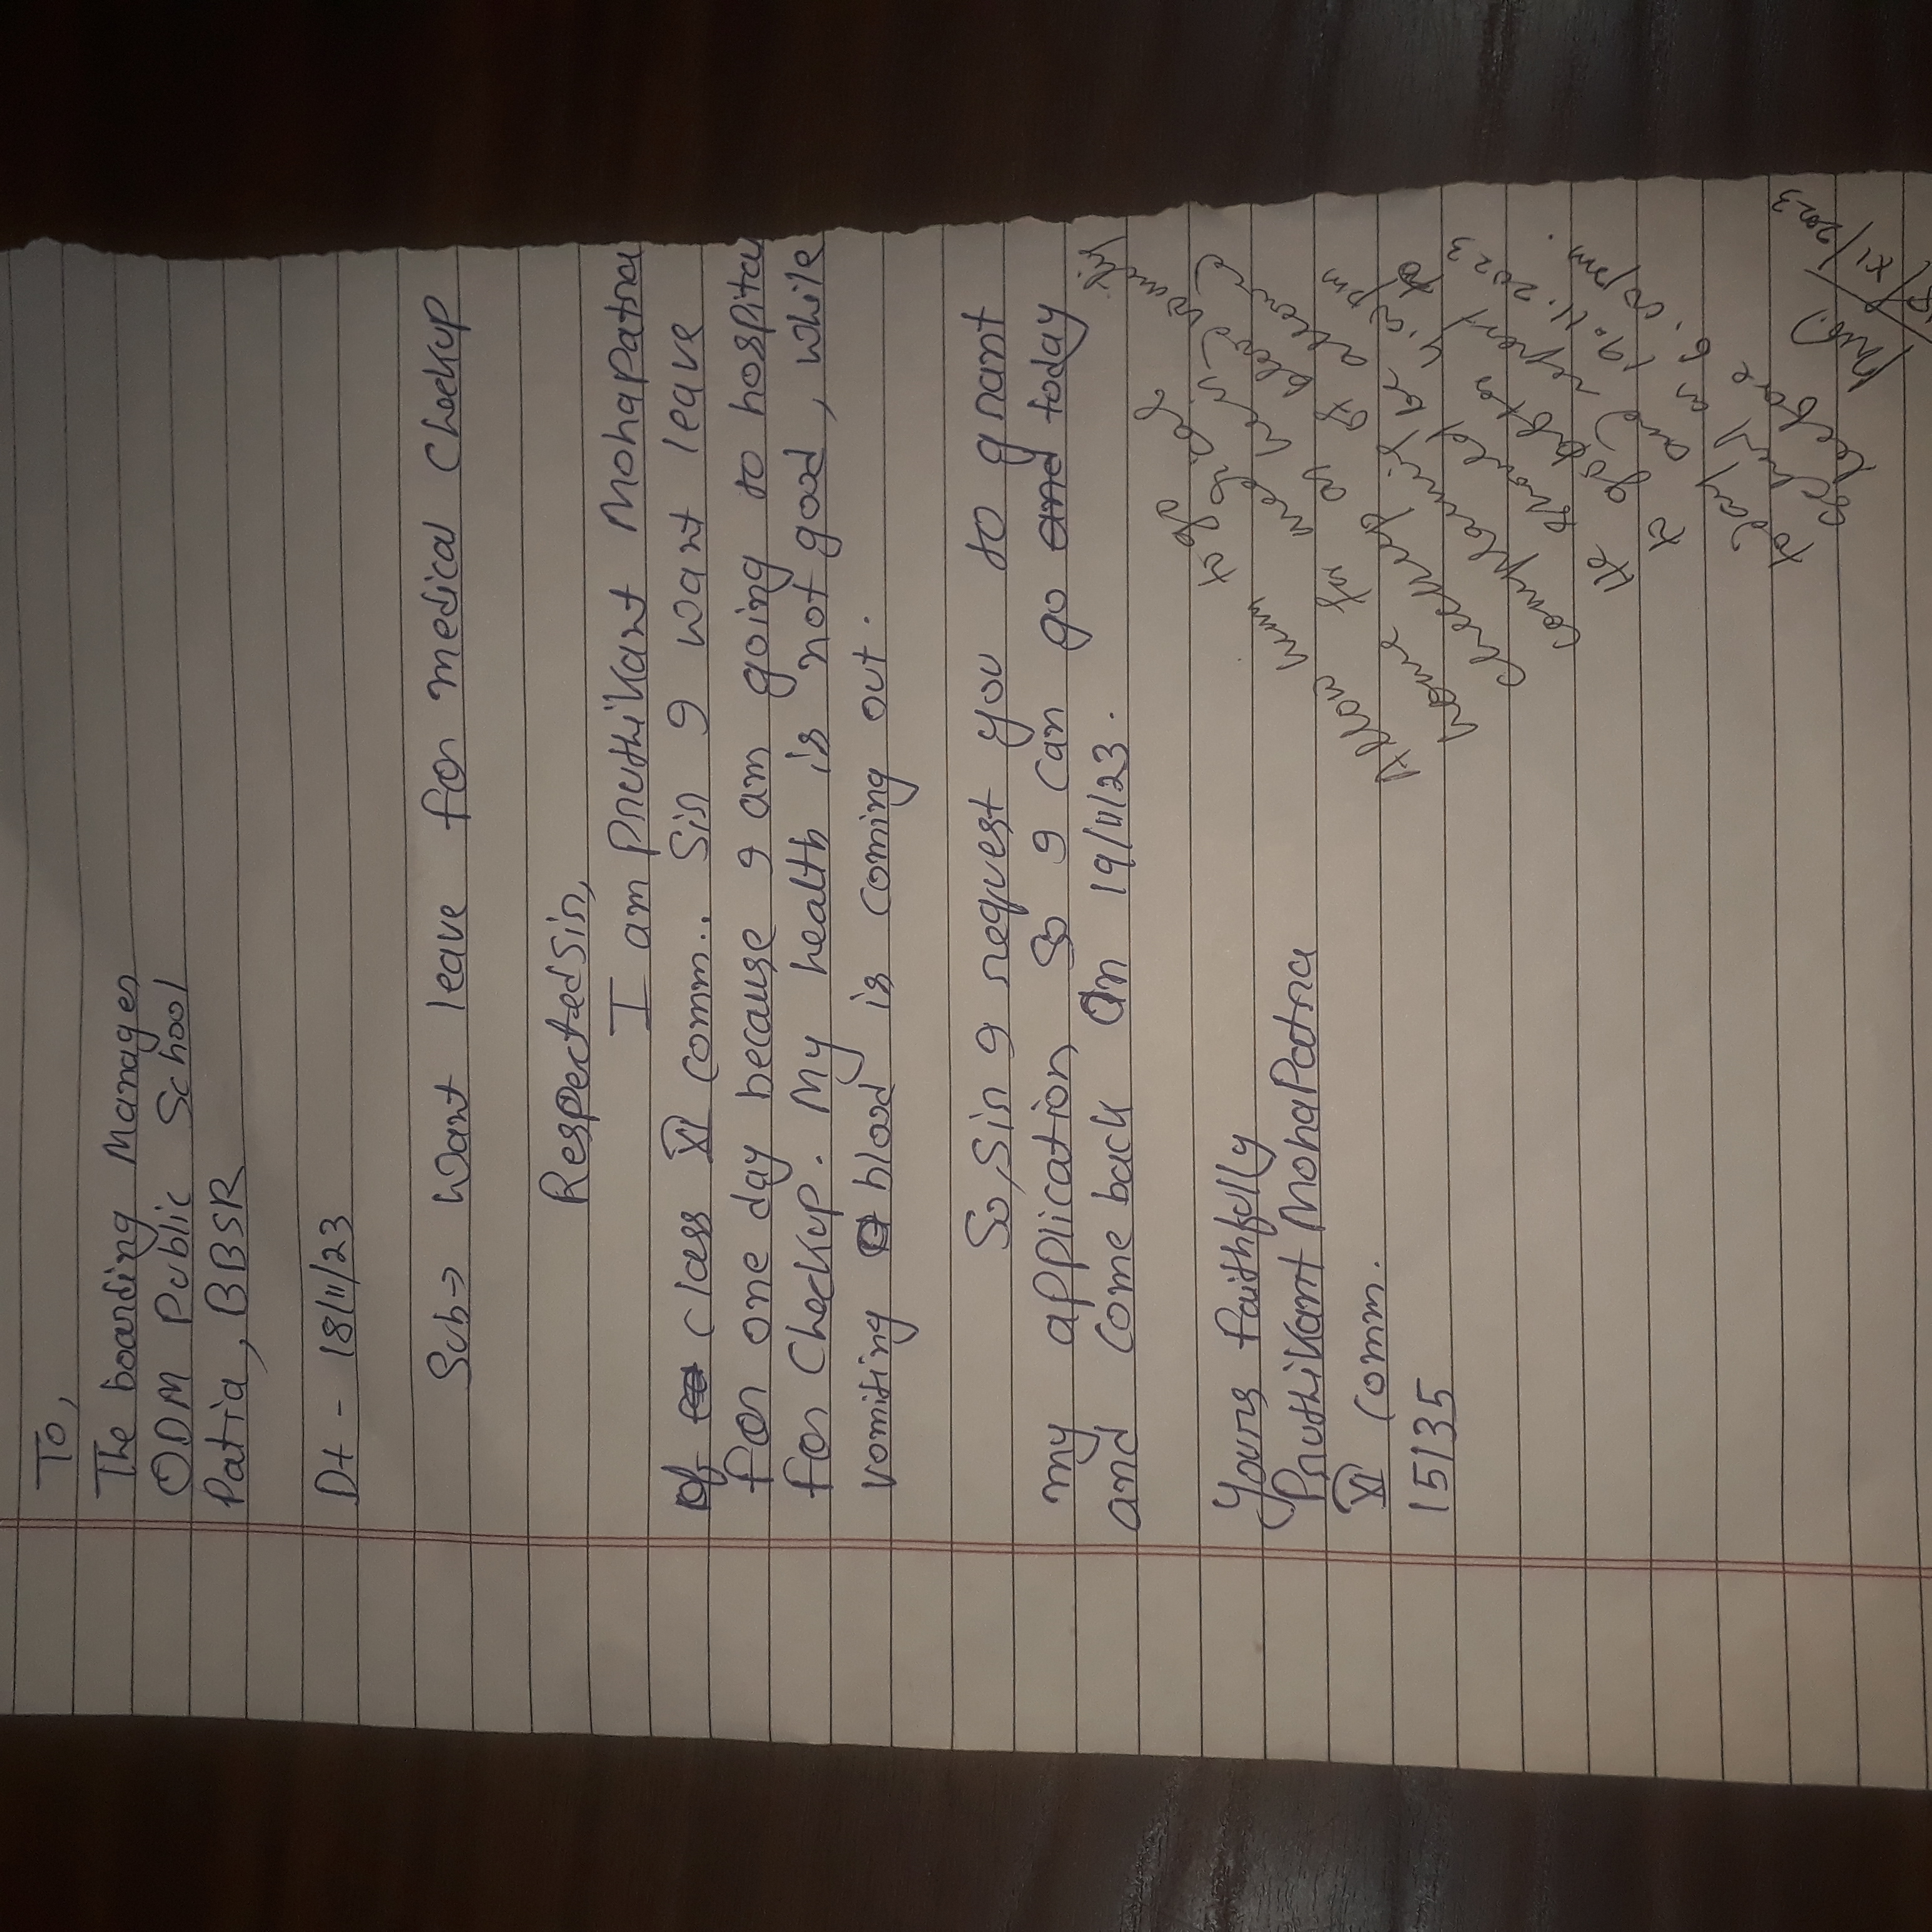 To,
The boarding Manager
ODM Public School
Patia, BBSR
Dt - 18/11/23
Sub → Want leave for medical Checkup
Respected Sir,
I am Pruthikant Mohapatra
of class XI comm.. Sir I want leave
for one day because I am going to hospital
for Checkup. My health is not good, while
vomiting blood is coming out.
So, Sir I request you to grant
my application, So I can go today
and come back On 19/11/23.
Yours faithfully
Pruthikant Mohapatra
XI Comm.
15135
Allow him to go to
home for
checkup
complaint
He should report
to go and 19.11.2023
today 4.00 pm
to 6.00 pm.
or before